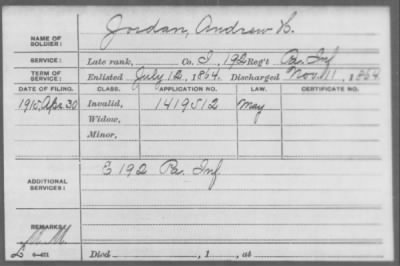 NAME OF SOLDIER: Jordan, Andrew B.
SERVICE: Late rank, Co. I, 192 Reg't Pa. Inf
TERM OF SERVICE: Enlisted July 12, 1864. Discharged Nov. 11, 1864
DATE OF FILING. CLASS. APPLICATION NO. LAW. CERTIFICATE NO.
1915, Apr. 30 Invalid, 1419512 May
Widow,
Minor,
ADDITIONAL SERVICES: E 192 Pa. Inf
REMARKS:
6—421 Died , 1 , at